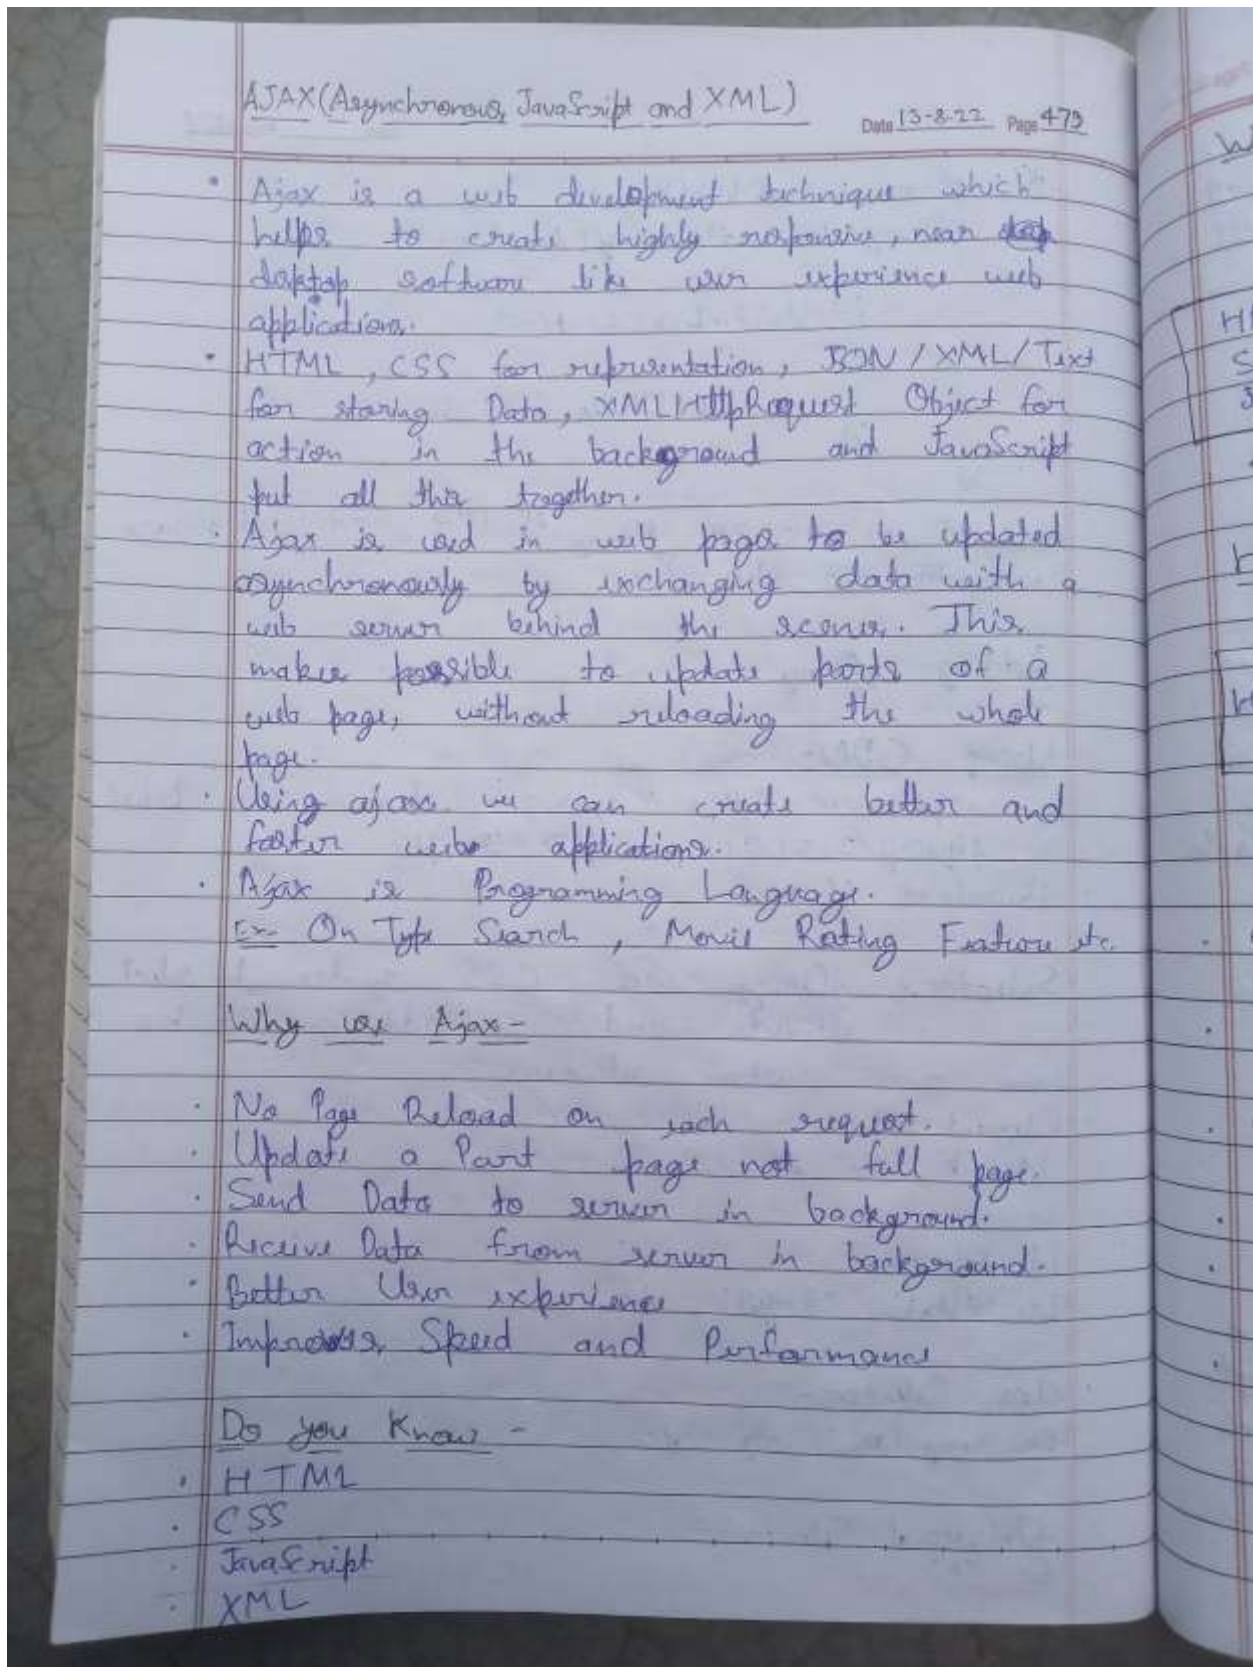 AJAX (Asynchronous JavaScript and XML)
Date 13-8-22 Page 479
• Ajax is a web development technique which
helps to create highly responsive, near
desktop software like user experience web
applications.
• HTML, CSS for representation, JSON / XML / Text
for storing Data, XMLHttpRequest Object for
action in the background and JavaScript
put all this together.
• Ajax is used in web page to be updated
asynchronously by exchanging data with a
web server behind the scenes. This
makes possible to update parts of a
web page, without reloading the whole
page.
• Using ajax we can create better and
faster web applications.
• Ajax is Programming Language.
Ex- On Type Search, Movie Rating Feature etc.
Why use Ajax -
• No Page Reload on each request.
• Update a Part page not full page.
• Send Data to server in background.
• Receive Data from server in background.
• Better User experience
• Improves Speed and Performance
Do you Know -
• HTML
• CSS
• JavaScript
• XML